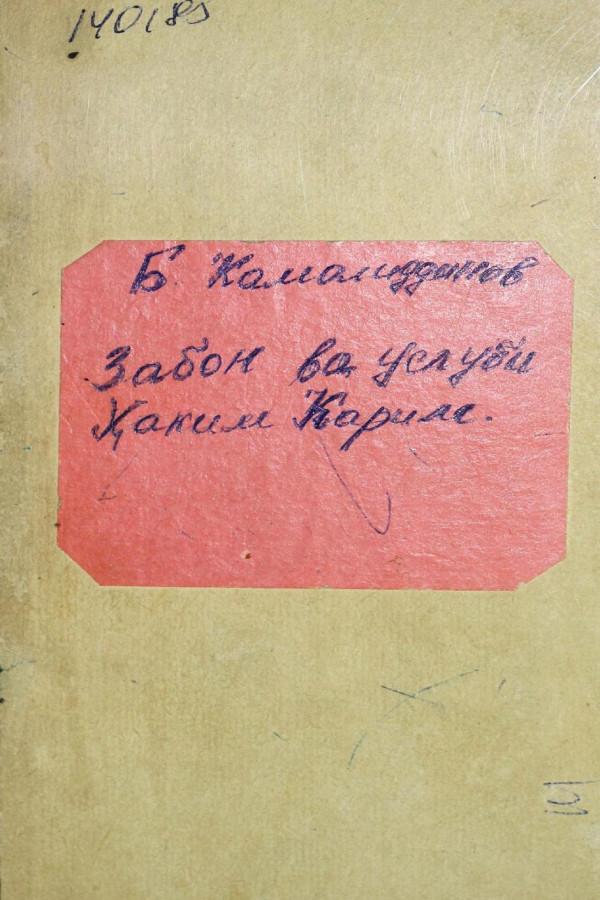 140185
Б. Камолиддинов
Забон ва услуби
Ҳаким Карим.